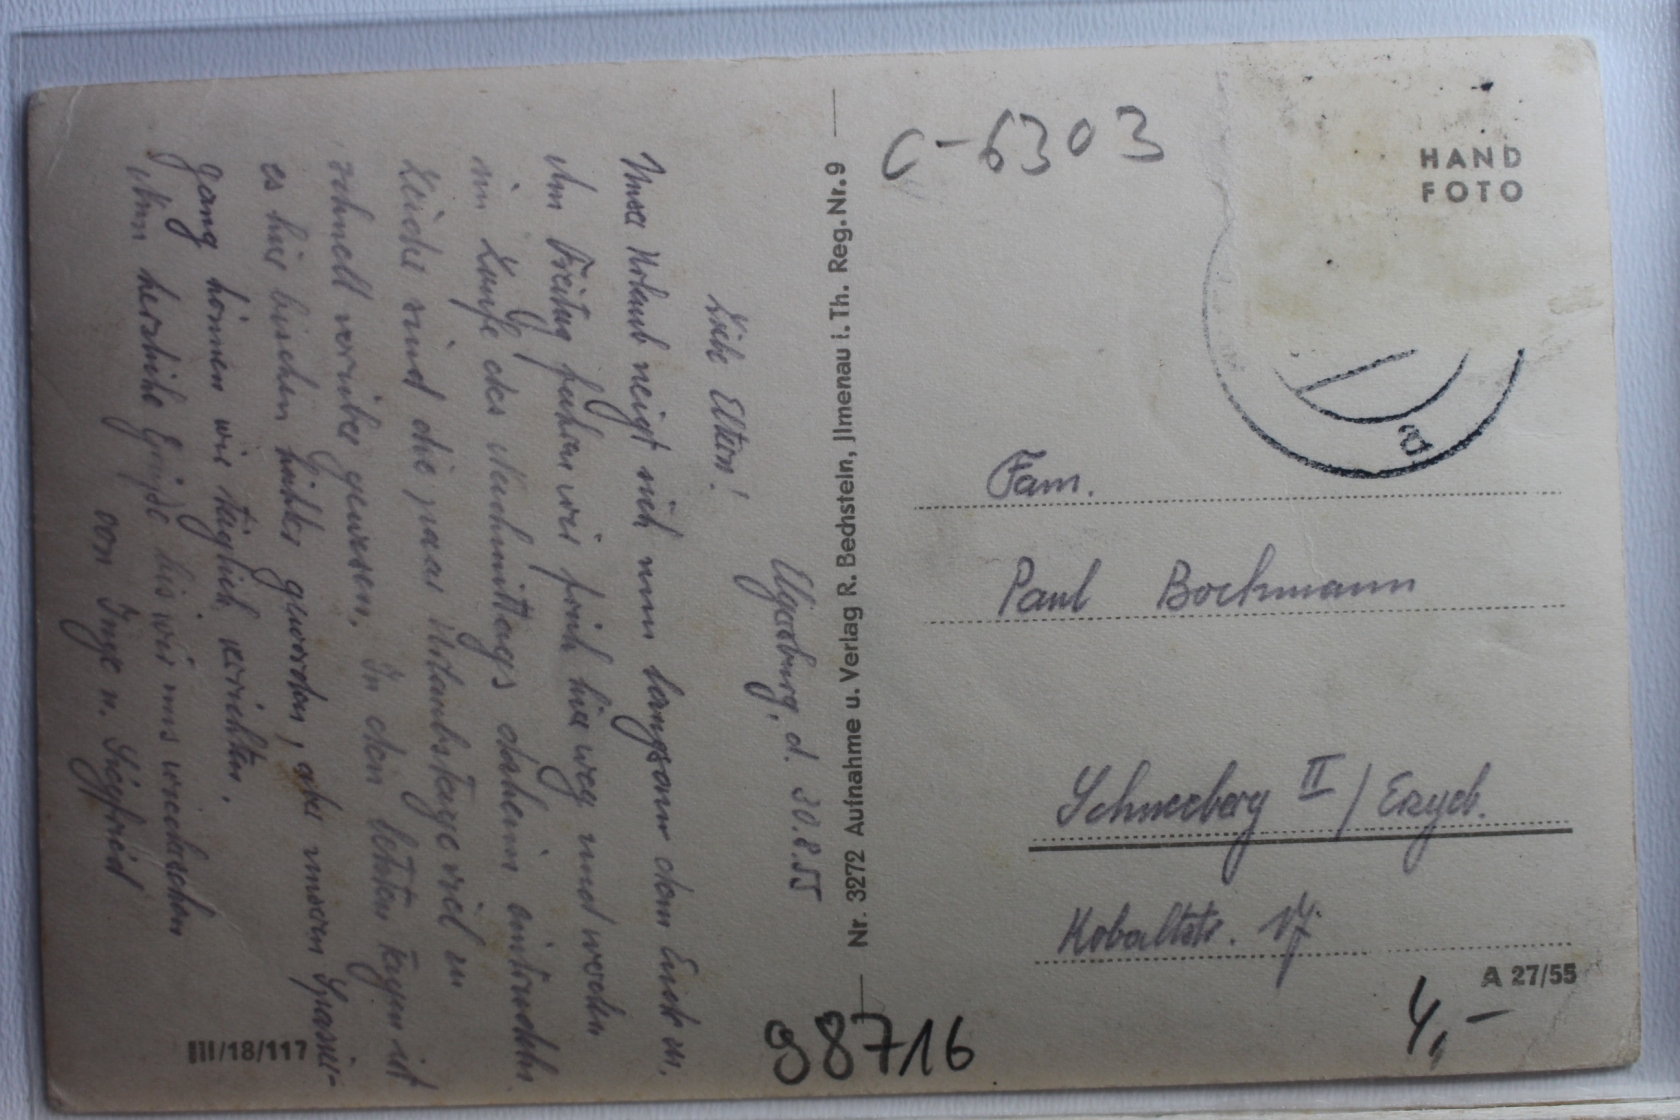 Elgersburg, d. 30.8.55
Liebe Eltern!
Unser Urlaub neigt sich nun langsam dem Ende zu.
Am Freitag fahren wir früh hier weg und werden
im Laufe des Nachmittags daheim eintrudeln.
Leider sind die paar Urlaubstage viel zu
schnell vorüber gewesen. In den letzten Tagen ist
es hier bischen kühler geworden, aber unsern Spazier-
gang können wir täglich verrichten.
Nun herzliche Grüße bis wir uns wiedersehen
von Inge u. Siegfried
III/18/117
Nr. 3272 Aufnahme u. Verlag R. Bechstein, Jlmenau i. Th. Reg.-Nr. 9
C-6303
HAND
FOTO
a
Fam.
Paul Bockmann
Schneeberg II / Erzgeb.
Kobaltstr. 17
A 27/55
4,-
98716